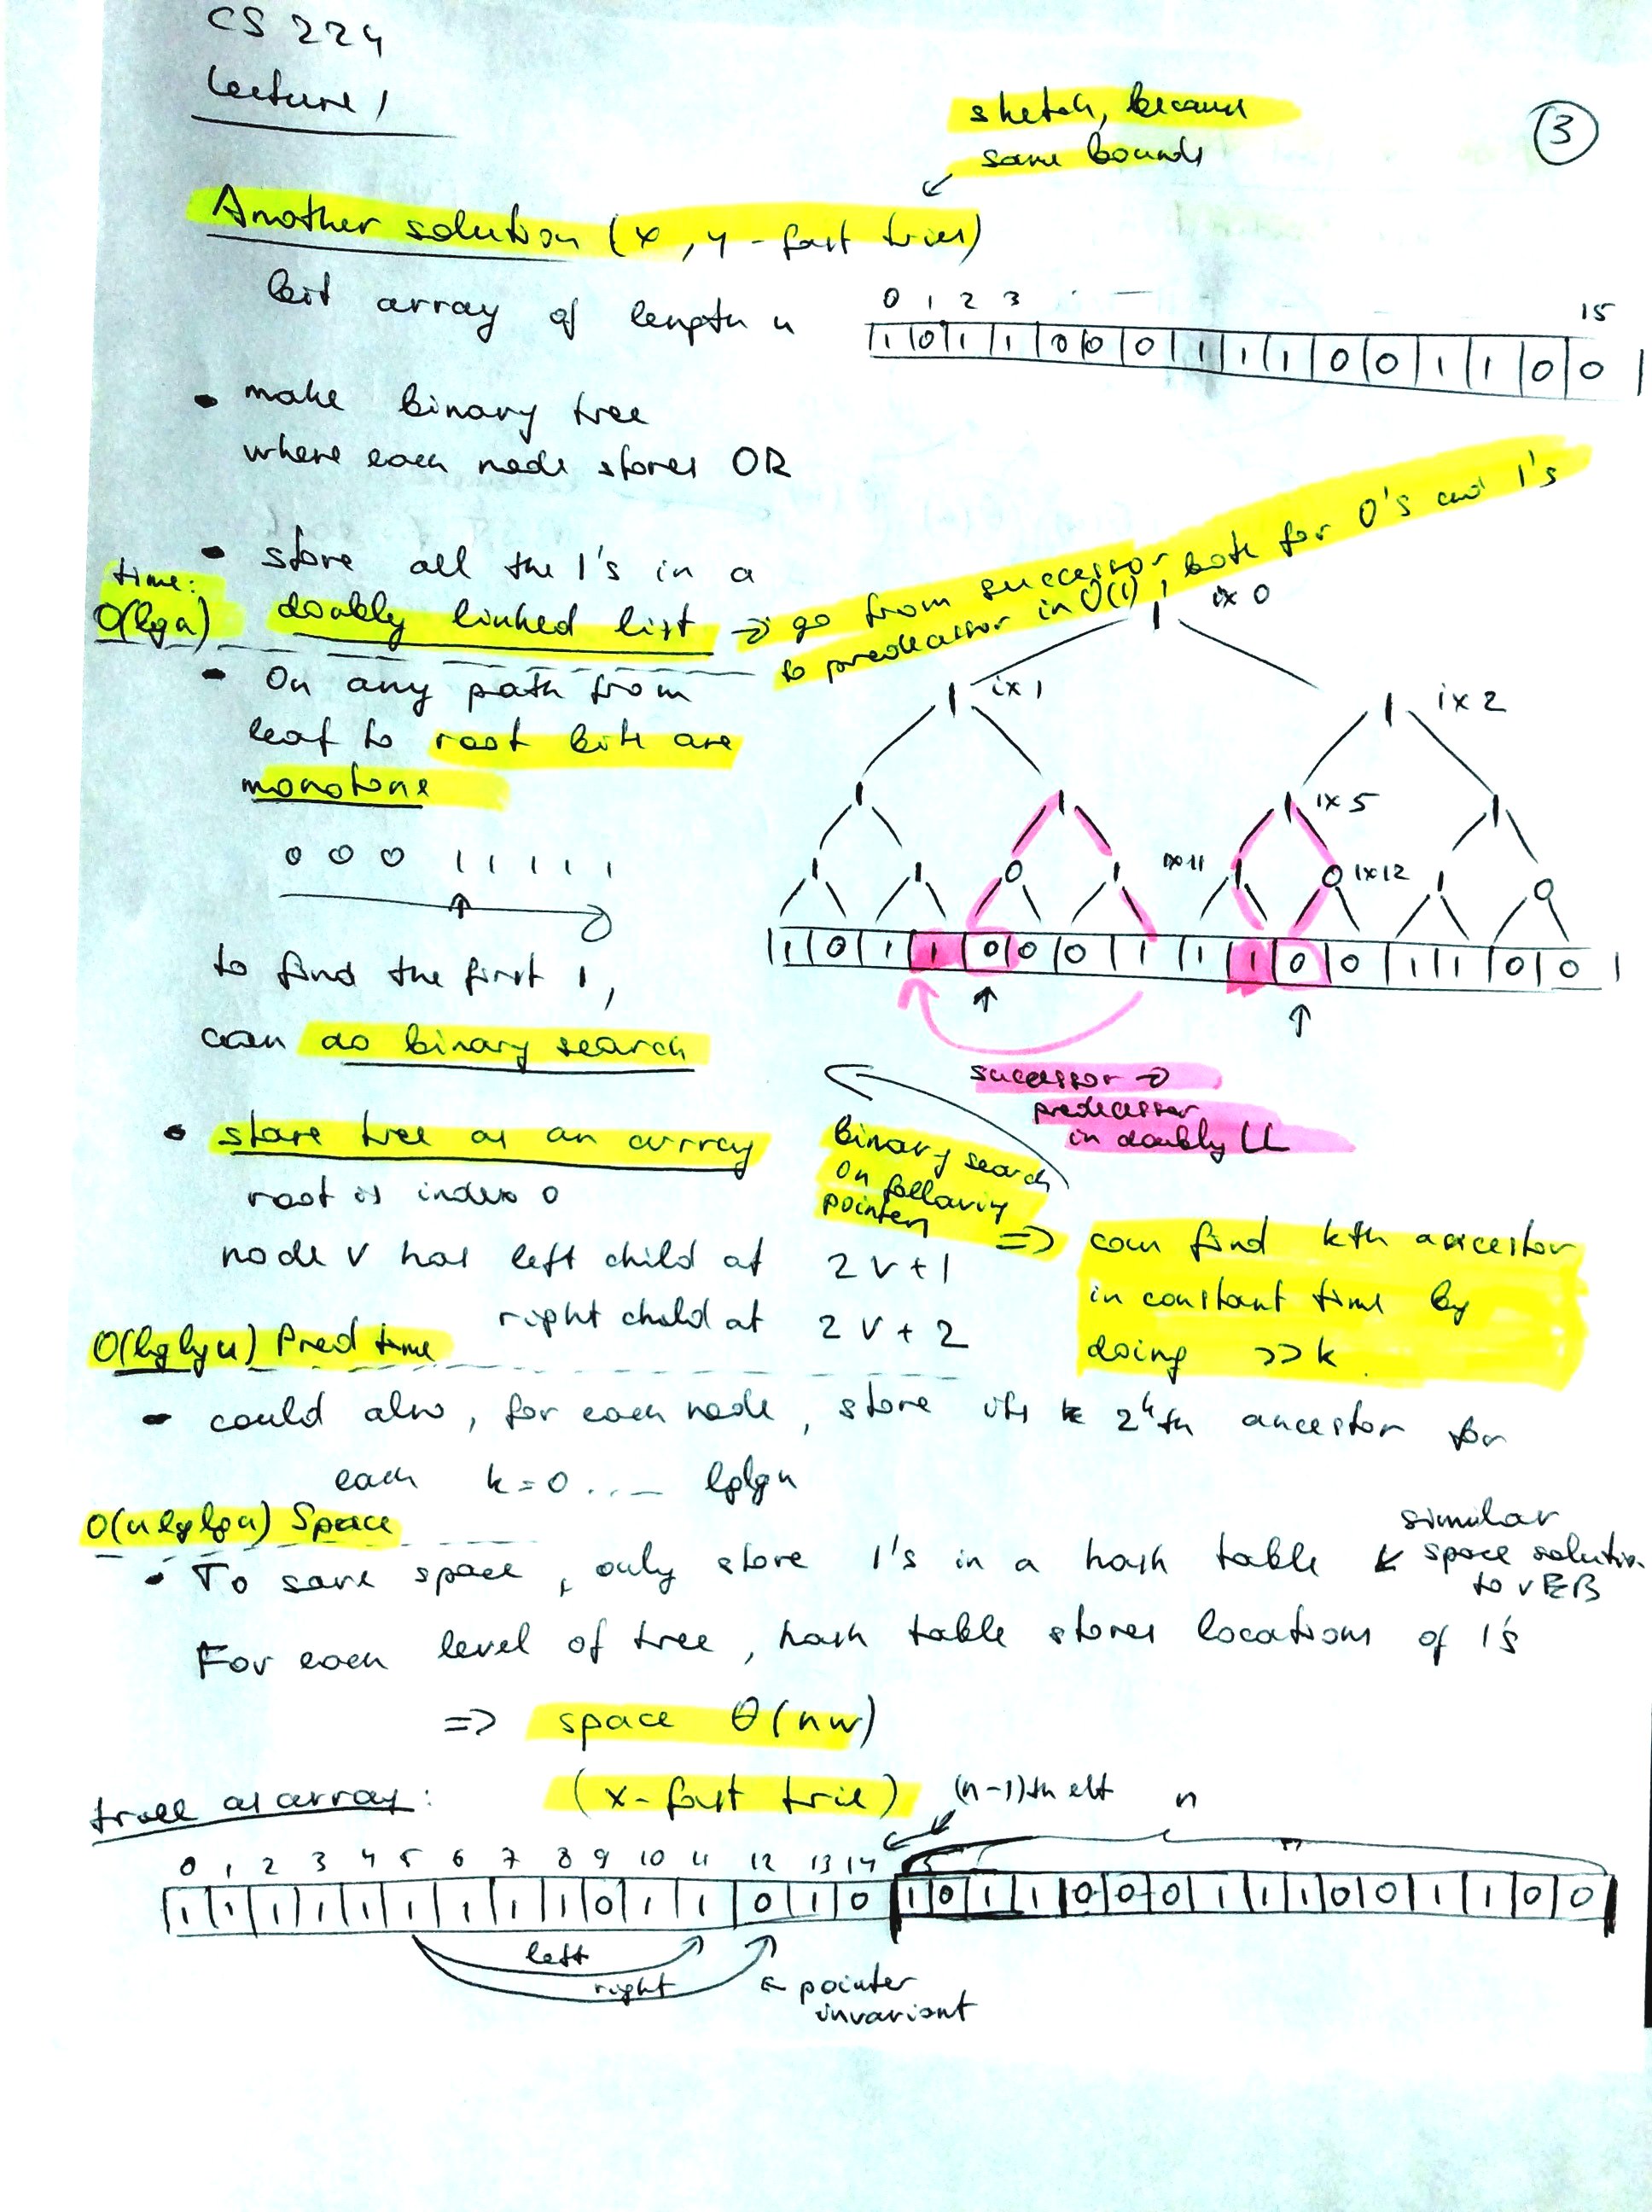 CS 224
Lecture 1
3
sketch, because
same bounds
Another solution (x, y - fast tries)
bit array of length u
0 1 2 3 . —
15
1 0 1 1 0 0 0 1 1 1 0 0 1 1 0 0
• make binary tree
where each node stores OR
• store all the 1's in a
doubly linked list → go from successor
to predecessor in O(1), both for 0's and 1's
time:
O(lg u)
• On any path from
leaf to root bits are
monotone
0 0 0 1 1 1 1 1
to find the first 1,
can do binary search
1 ix 0
1 ix 1
1 ix 2
1 1 1 ix 5 1
1 1 0 1 ix 11 1 0 ix 12 1 0
1 0 1 1 0 0 0 1 1 1 0 0 1 1 0 0
successor →
predecessor
in doubly LL
binary search
on following
pointers
• store tree as an array
root is index 0
node v has left child at 2v+1
right child at 2v+2
=> can find kth ancestor
in constant time by
doing >>k
O(lglgu) Pred time
• could also, for each node, store its 2^k th ancestor for
each k=0 ... lglgu
O(u lglgu) Space
• To save space, only store 1's in a hash table
similar
space solution
to vEB
For each level of tree, hash table stores locations of 1's
=> space θ(nw)
(x-fast trie)
tree as array:
(n-1)th elt
n
0 1 2 3 4 5 6 7 8 9 10 11 12 13 14 15
1 1 1 1 1 1 1 1 1 0 1 1 0 1 0 1 0 1 1 0 0 0 1 1 1 0 0 1 1 0 0
left
right
← pointer
invariant